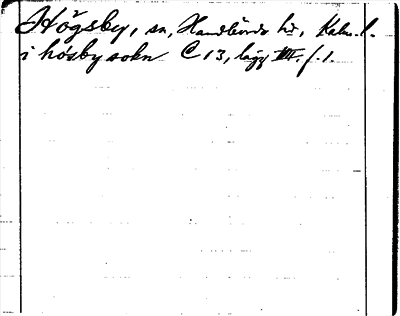 Högsby, sn, Handbörds hd, Kalm. l.
i høsby sokn C 13, lägg III. f. 1.